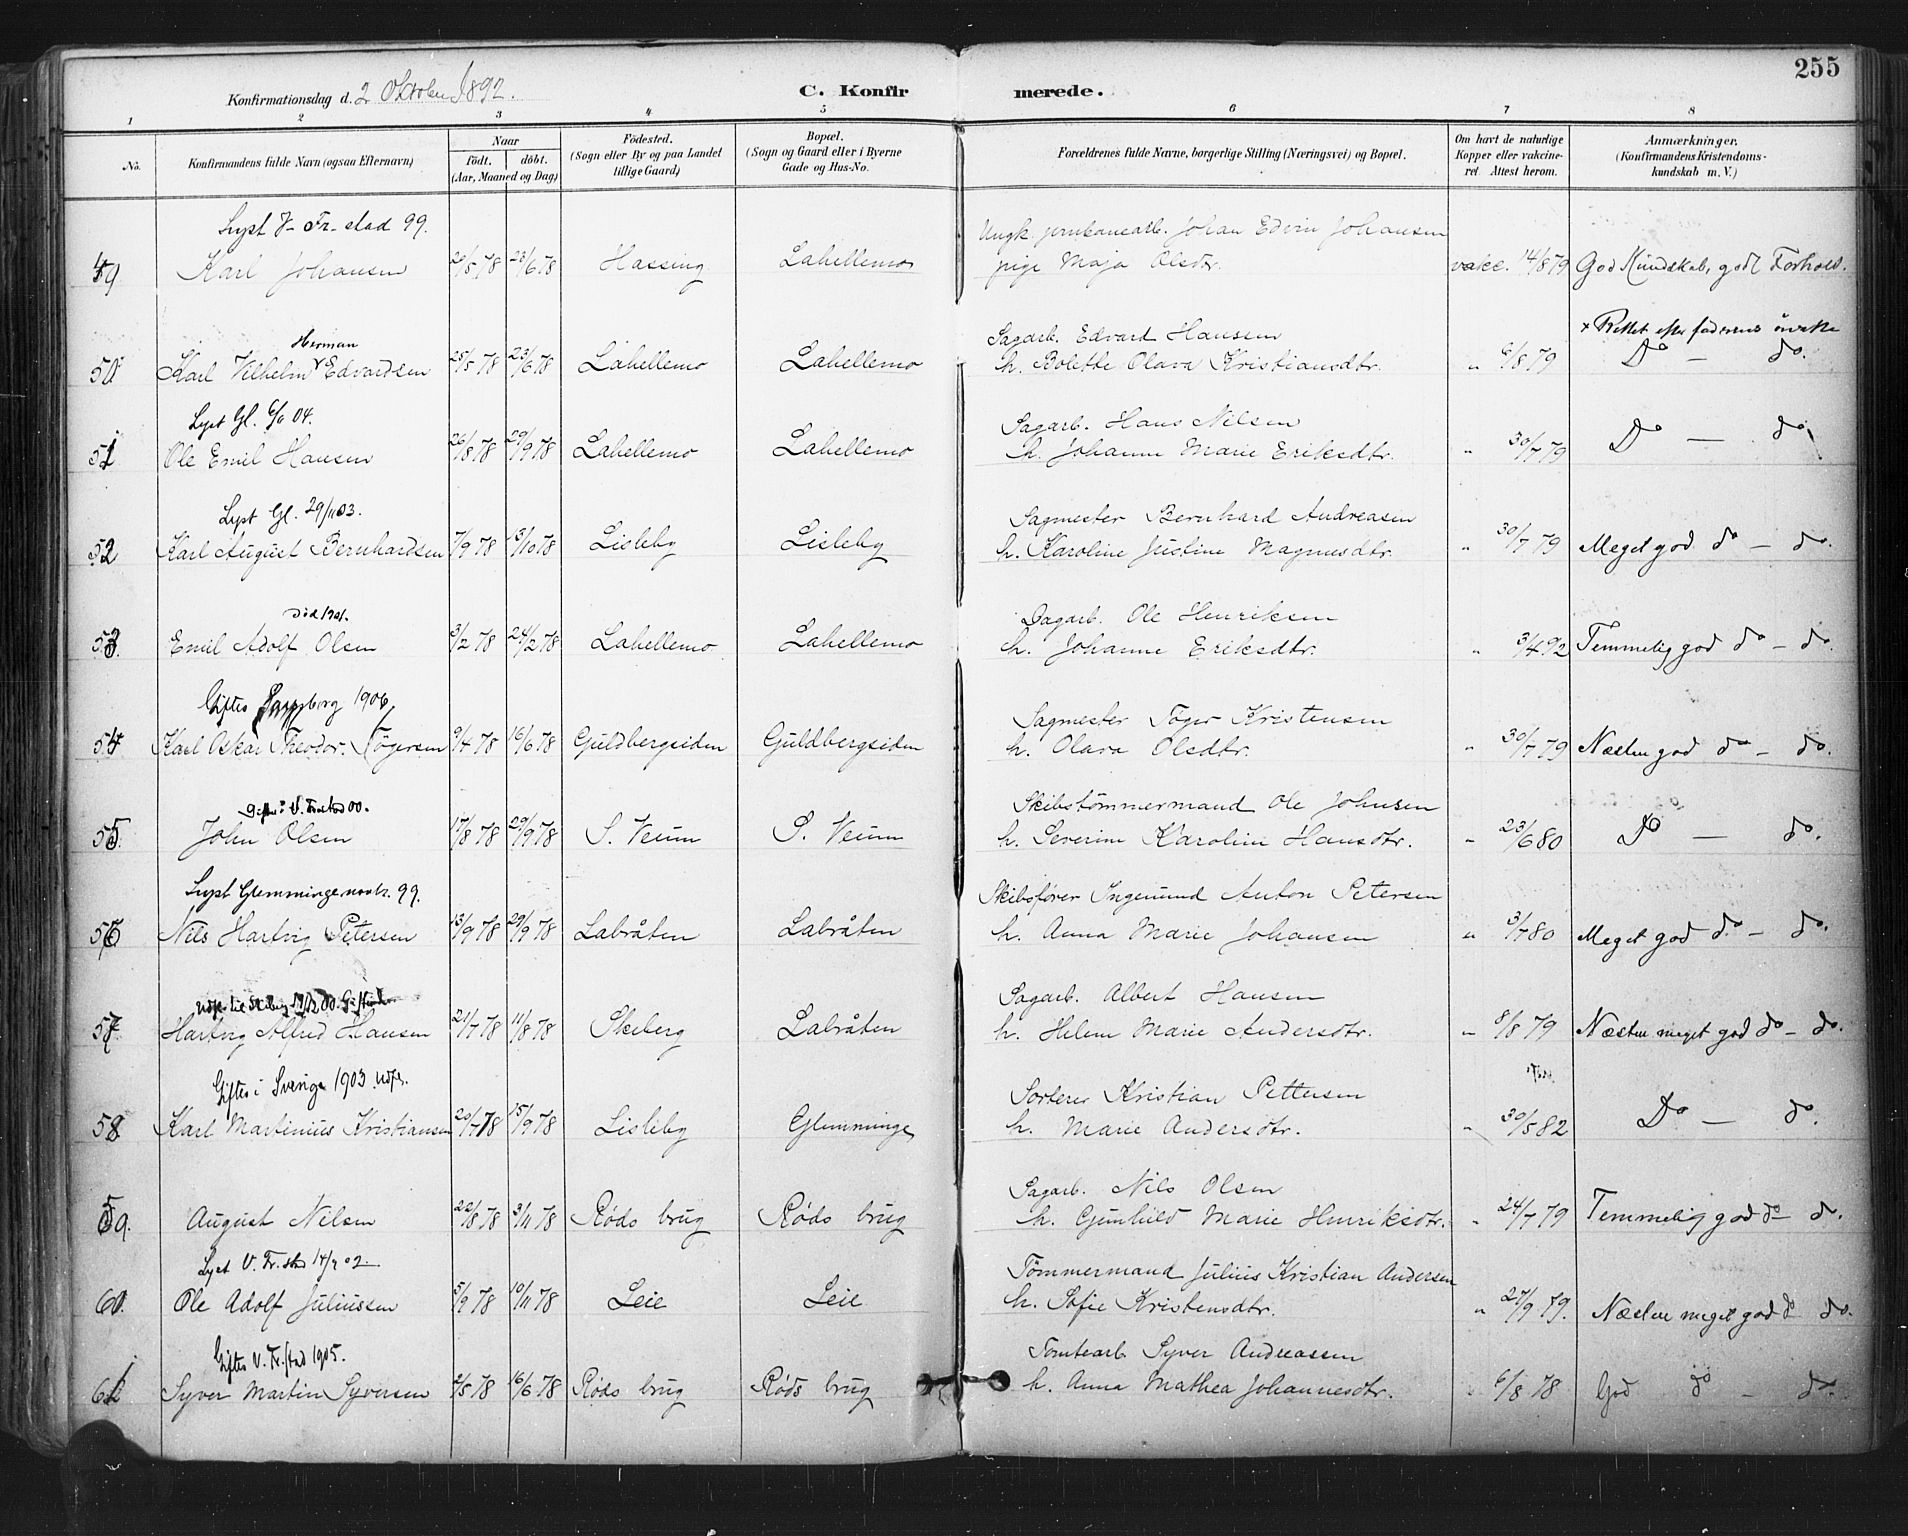 255
Konfirmationsdag d. 2 Oktober 1892. C. Konfirmerede.
1 2 3 4 5 6 7 8
No. Konfirmandens fulde Navn (ogsaa Efternavn) Naar födt. döbt. (Aar, Maaned og Dag) Födested. (Sogn eller By og paa Landet tillige Gaard) Bopæl. (Sogn og Gaard eller i Byerne Gade og Hus-No. Forældrenes fulde Navne, borgerlige Stilling (Næringsvei) og Bopæl. Om havt de naturlige Kopper eller vakcineret. Attest herom. Anmærkninger. (Konfirmandens Kristendomskundskab m. V.)
Lyst V- Fr-stad 99. Ungk. Johan Edvin Johansen
49 Karl Johansen 26/5 78 23/6 78 Hassing Lahellemo pige Maja Olsdtr. vakc. 14/8 79 God Kundskab, godt Forhold.
Herman Sagarb. Edvard Hanssen × Rettet efter faderens önske
50 Karl Vilhelm × Edvardsen 25/5 78 23/6 78 Lahellemo Lahellemo h. Bolette Olava Kristiansdtr. " 6/8 79 Do — do.
Lyst Gl. 04. Sagarb. Hans Nilsen
51 Ole Emil Hansen 26/8 78 29/9 78 Lahellemo Lahellemo h. Johanne Marie Eriksdtr. " 30/7 79 Do — do.
Lyst Gl. 29/11 03. Sagmester Bernhard Andreasen
52 Karl August Bernhardsen 7/9 78 13/10 78 Lisleby Lisleby h. Karoline Justine Magnusdtr. " 30/7 79 Meget god do — do.
Död 1901. Sagarb. Ole Henriksen
53. Emil Adolf Olsen 3/2 78 24/2 78 Lahellemo Lahellemo h. Johanne Eriksdtr. " 3/4 92 Temmelig god do — do.
Giftes Sarpsborg 1906 Sagmester Töger Kristensen
54 Karl Oskar Theodor Tögersen 9/4 78 16/6 78 Guldbergsiden Guldbergsiden h. Olava Olsdtr. " 30/7 79 Næsten god do — do.
Giftes i V. Fr.stad 00. Skibstömmermand Ole Johnsen
55. John Olsen 17/8 78 29/9 78 S. Veum S. Veum h. Severine Karoline Hansdtr. " 23/6 80 Do — do.
Lyst Glemminge 99. Skibsfører Ingemund Anton Petersen
56 Nils Hartvig Petersen 13/9 78 29/9 78 Labråten Labråten h. Anna Marie Johansen " 3/7 80 Meget god do — do.
Sagarb. Albert Hansen
57 Hartvig Alfred Hansen 21/7 78 11/8 78 Skeberg Labråten h. Helene Marie Andersdtr. " 8/8 79 Næsten meget god do — do.
Giftes i Sverige 1903. Sorterer Kristian Pettersen
58 Karl Martinius Kristiansen 20/7 78 15/9 78 Lisleby Glemminge h. Marie Andersdtr. " 30/5 82 Do — do.
Sagarb. Nils Olsen
59. August Nilsen 22/8 78 3/11 78 Røds brug Røds brug h. Gunhild Marie Henriksdtr. " 24/7 79 Temmelig god do — do.
Lyst V. Fr.stad 14/9 02. Tömmermand Julius Kristian Andersen
60. Ole Adolf Juliussen 5/9 78 10/11 78 Leie Leie h. Sofie Kristensdtr. " 27/9 79. Næsten meget god do do.
Giftes V. Fr.stad 1905. Tomtearb. Syver Andreassen
61 Syver Martin Syversen 2/5 78 16/6 78 Røds brug Røds brug h. Anna Mathea Johannesdtr. " 6/8 78 God do — do.